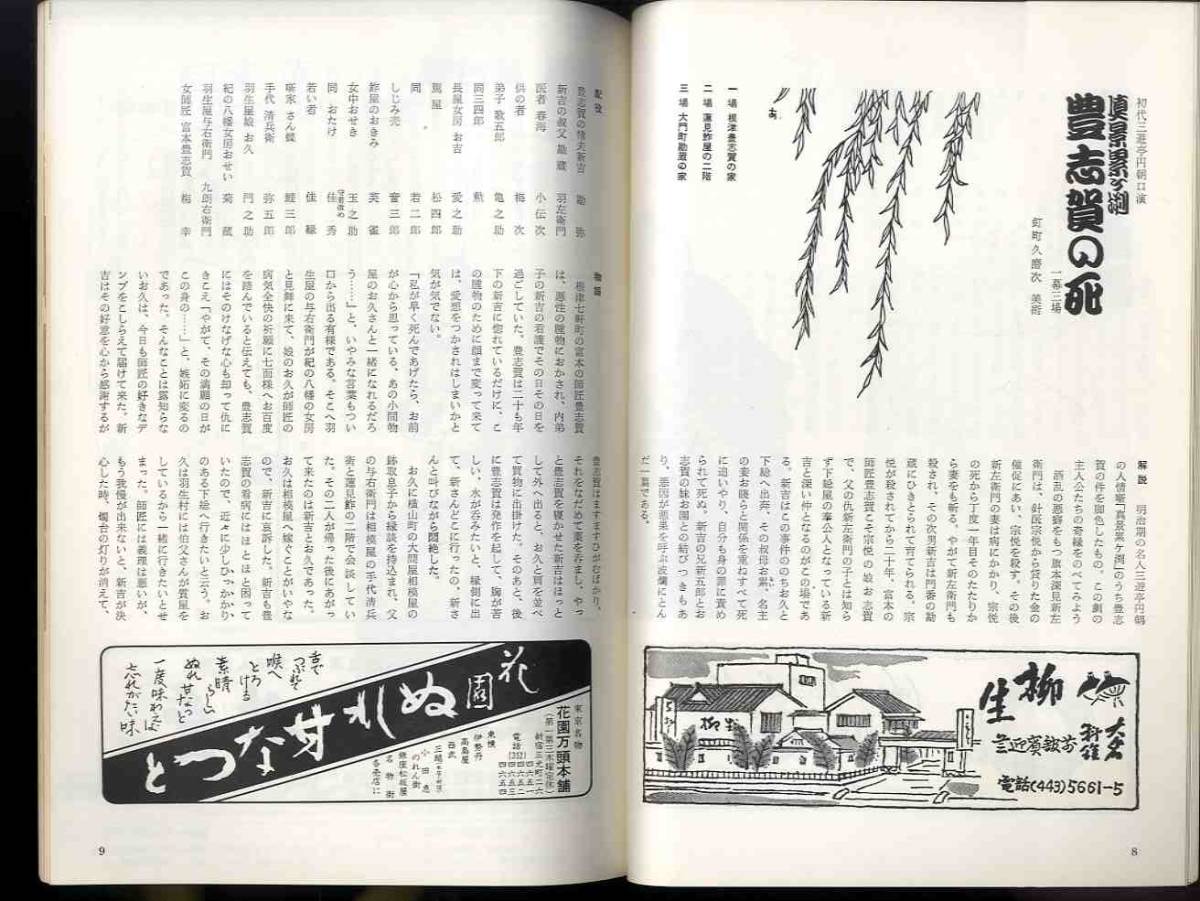 初代三遊亭円朝口演
真景累ヶ淵
豊志賀の死
一幕三場
釘町久磨次 美術
一場 根津豊志賀の家
二場 蓮見鮓屋の二階
三場 大門町勘蔵の家
解説 明治期の名人三遊亭円朝
の人情噺「真景累ヶ淵」のうち豊志
賀の件を脚色したもの。この劇の
主人公たちの奇縁をのべてみよう
酒乱の悪癖をもつ旗本深見新左
衛門は、針医宗悦から貸りた金の
催促にあい、宗悦を殺す。その後
新左衛門の妻は病にかかり、宗悦
の死から丁度一年目そのたたりか
ら妻をも斬る。やがて新左衛門も
殺され、その次男新吉は門番の勘
蔵にひきとられて育てられる。宗
悦が殺されてから二十年、富本の
師匠豊志賀こそ宗悦の娘お志賀
で、父の仇新左衛門の子とは知ら
ず下総屋の奉公人となっている新
吉と深い仲となるのがこの場であ
る。新吉はこの事件ののちお久と
下総へ出奔、その叔母お累、名主
の妻お賤らと関係を重ねすべて死
に追いやり、自分も身の罪に責め
られて死ぬ。新吉の兄新五郎とお
志賀の妹お園との結びつきもあ
り、悪因が悪果を呼ぶ波瀾にとん
だ一篇である。
大名料理
竹
柳生
御披露宴迎
電話(443)5661-5
8
配役
豊志賀の情夫新吉 勘弥
新吉の叔父 勘蔵 羽左衛門
医者 春海 小伝次
供の者 梅次
弟子 歌五郎 亀之助
同三四郎 勲
長屋女房 お吉 愛之助
駕屋 松四郎
同 若二郎
しじみ売 音三郎
鮓屋のおきみ 英雀
女中おせき 玉之助
同 おたけ 佳秀
若い者 佳緑
噺家 さん蝶 鯉三郎
手代 清兵衛 弥五郎
羽生屋娘 お久 門之助
紀の八幡女房おせい 菊蔵
羽生屋与右衛門 九朗右衛門
女師匠 富本豊志賀 梅幸
物語 根津七軒町の富本の師匠豊志賀
は、悪性の腫物におかされ、内弟
子の新吉の看護でその日その日を
過ごしていた。豊志賀は二十も年
下の新吉に惚れているだけに、こ
の腫物のために顔まで変って来て
は、愛想をつかされはしまいかと
気が気でない。
「私が早く死んであげたら、お前
が心から思っている、あの小間物
屋のお久さんと一緒になれるだろ
う……」と、いやみな言葉もつい
口から出る有様である。そこへ羽
生屋の与右衛門が紀の八幡の女房
と見舞に来て、娘のお久が師匠の
病気全快の祈願に七面様へお百度
を踏んでいると伝えても、豊志賀
にはそのけなげな心も却って仇に
きこえ「やがて、その満願の日が
この身の……」と、嫉妬に変るの
であった。そんなことは露知らな
いお久は、今日も師匠の好きなデ
ンブをこしらえて届けて来た。新
吉はその好意を心から感謝するが
豊志賀はますますひがむばかり、
それをなだめて薬を呑まし、やっ
と豊志賀を寝かせた新吉はほっと
して外へ出ると、お久と肩を並べ
て買物に出掛けた。そのあと、後
に豊志賀は発作を起して、胸が苦
しい、水が呑みたいと、縁側に出
て、新さんどこに行ったの、新さ
んと叫びながら悶絶した。
お久に横山町の大問屋相模屋の
跡取息子から縁談を持込まれ、父
の与右衛門は相模屋の手代清兵
衛と蓮見鮓の二階で会談してい
た。その二人が帰った後にあがっ
て来たのは新吉とお久であった。
お久は相模屋へ嫁ぐことがいやな
ので、新吉に哀訴した。新吉も豊
志賀の看病にはほとほと困って
いたので、近々に少しひっかかり
のある下総へ行きたいと云う。お
久は羽生村には伯父さんが質屋を
しているから一緒に行きたいとせ
まった。師匠には義理は悪いが、
もう我慢が出来ないと、新吉が決
心した時、燭台の灯りが消えて、
東京名物
花園万頭本舗
(第一第三木曜定休)
新宿三光町二六
電話(352)四六五一
四六五二
四六五三
四六五四
東横
伊勢丹
高島屋
西武
三越
小田急
のれん街
名物街
銀座松坂屋
各売店に
花園
ぬれ甘なつと
舌で
つぶれて
喉へ
とろける
素晴らしい
ぬれ甘なっと
一度味わえば
忘れがたい味
9